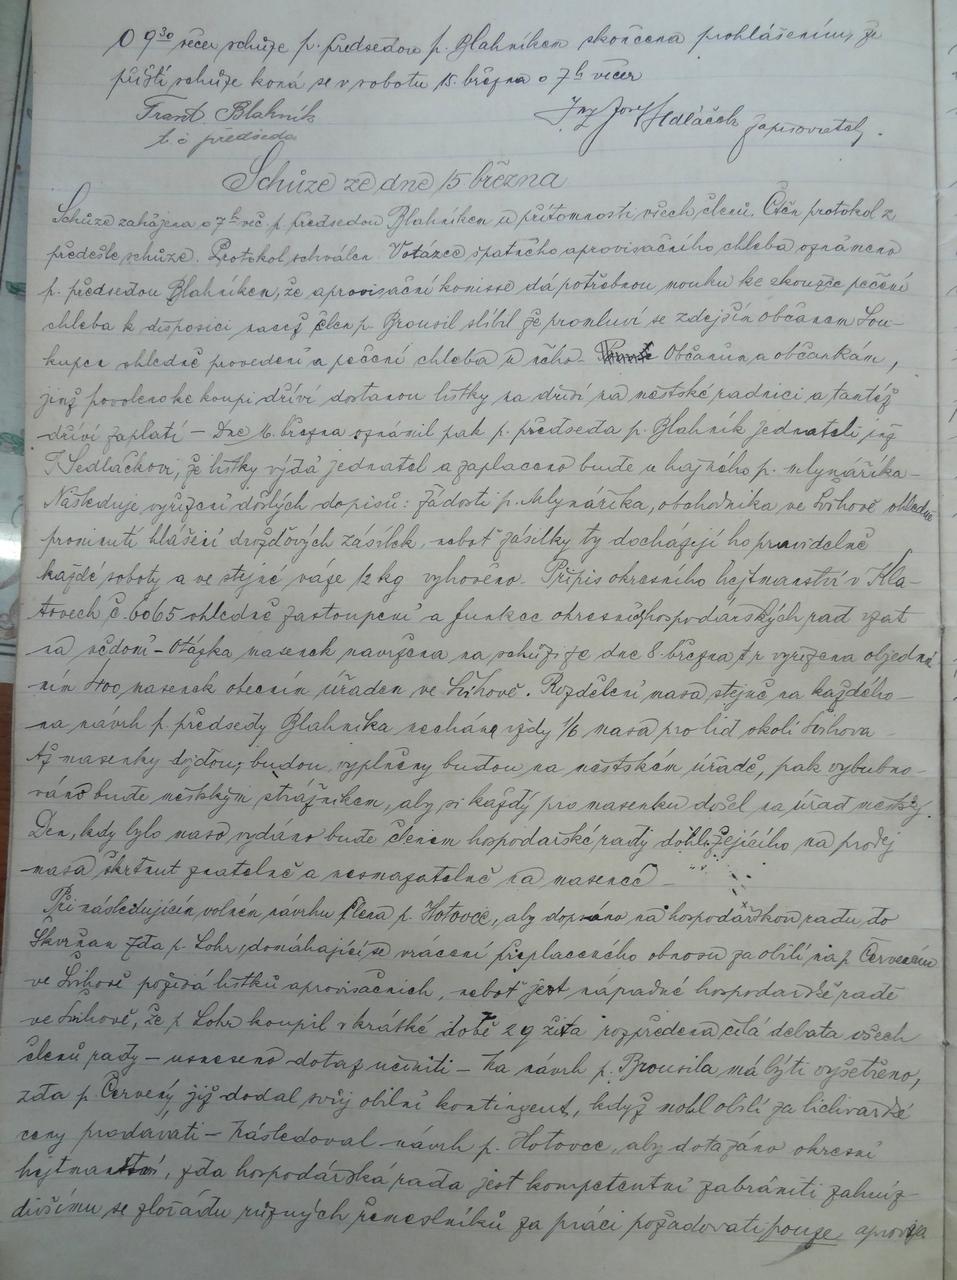 O 9 30 večer schůze p. předsedou p. Blahníkem skončena prohlášením, že
příští schůze koná se v sobotu 15. března o 7 h večer
Frant Blahník
t. č předseda
Ing Josef Sedláček zapisovatel.
Schůze ze dne 15 března
Schůze zahájena o 7 h več. p. předsedou Blahníkem u přítomnosti všech členů. Čten protokol z
předešlé schůze. Protokol schválen. V otázce špatného aprovisačního chleba oznámeno
p. předsedou Blahníkem, že aprovisační komisse dá potřebnou mouku ke zkoušce pečení
chleba k disposici načež člen p. Brousil slíbil že promluví se zdejším občanem Sou-
kupem ohledně provedení a pečení chleba u něho. Občanům a občankám,
jimž povoleno ke koupi dříví dostanou lístky na dříví na městské radnici a tamtéž
dříví zaplatí – Dne 16. března oznámil pak p. předseda p. Blahník jednateli ing
J Sedláčkovi, že lístky vydá jednatel a zaplaceno bude u hajného p. mlynáříka –
Následuje vyřízení došlých dopisů: žádosti p. Mlynáříka, obchodníka ve Švihově ohledně
prominutí hlášení drožďových zásilek, neboť zásilky ty docházejí ho pravidelně
každé soboty a ve stejné váze 12 kg vyhověno. Přípis okresního hejtmanství v Kla-
tovech č. 6065 ohledně zastoupení a funkce okresních hospodářských rad vzat
na vědomí – Otázka masenek navržena na schůzi ze dne 8. března t r vyřízena objedná-
ním 400 masenek obecním úřadem ve Švihově. Rozdělení masa stejně na každého –
na návrh p. předsedy Blahníka nechána vždy 1/6 masa pro lid okolí Švihova –
Až masenky dojdou, budou vyplněny budou na městském úřadě, pak vybubno-
váno bude městským strážníkem, aby si každý pro masenku došel na úřad městský.
Den, kdy bylo maso vydáno bude členem hospodářské rady dohlížejícího na prodej
masa škrtnut znatelně a nesmazatelně na masence –
Při následujícím volném návrhu člena p. Hotovce, aby dopsáno na hospodářskou radu do
Skvrňan zda p. Lohr, domáhající se vrácení přeplaceného obnosu za obilí na p Červeném
ve Švihově požívá lístků aprovisačních, neboť jest nápadné hospodářské radě
ve Švihově, že p Lohr koupil v krátké době 2 q žita rozpředena celá debata všech
členů rady – usneseno dotaz učiniti – Na návrh p. Brousila má býti vyšetřeno,
zda p. Červený již dodal svůj obilní kontingent, když mohl obilí za lichvářské
ceny prodavati – Následoval návrh p. Hotovce, aby dotázáno okresní
hejtmanství, zda hospodářská rada jest kompetentní zabrániti zahníz-
divšímu se zlořádu různých řemeslníků za práci požadovati pouze aprovisa